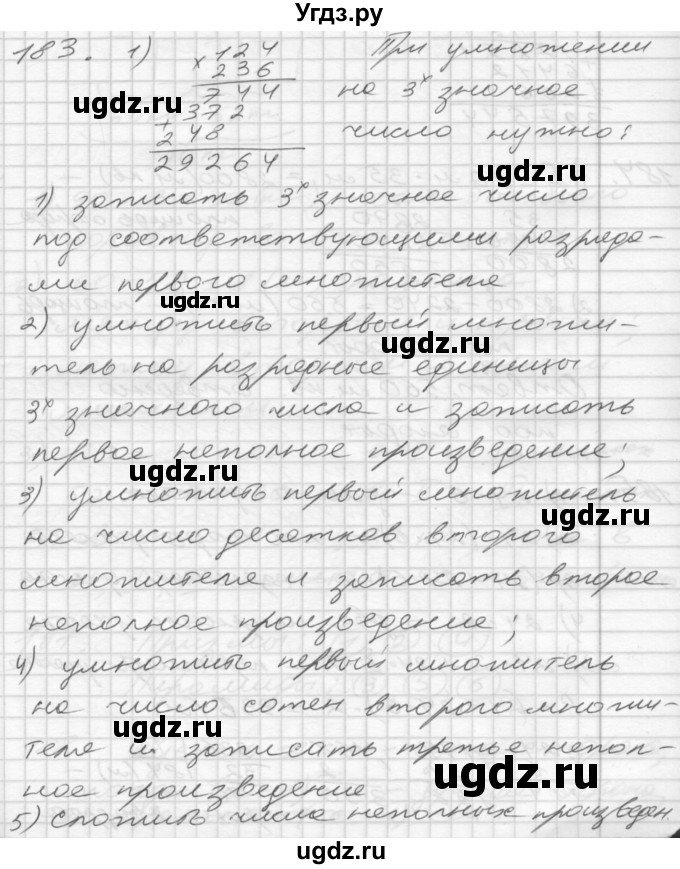 Угдз.ру
183. 1) 124 При умножении
× 236 на 3х значное
744 число нужно:
+ 372
248
29264
1) записать 3х значное число
под соответствующими разряда-
ми первого множителя
2) умножить первый множи-
тель на разрядные единицы
3х значного числа и записать
первое неполное произведение;
3) умножить первый множитель
на число десятков второго
множителя и записать второе
неполное произведение;
4) умножить первый множитель
на число сотен второго множи-
теля и записать третье непол-
ное произведение
5) сложить числа неполных произведен.
ugdz.ru
ugdz.ru
ugdz.ru
ugdz.ru
ugdz.ru
ugdz.ru
ugdz.ru
ugdz.ru
ugdz.ru
ugdz.ru